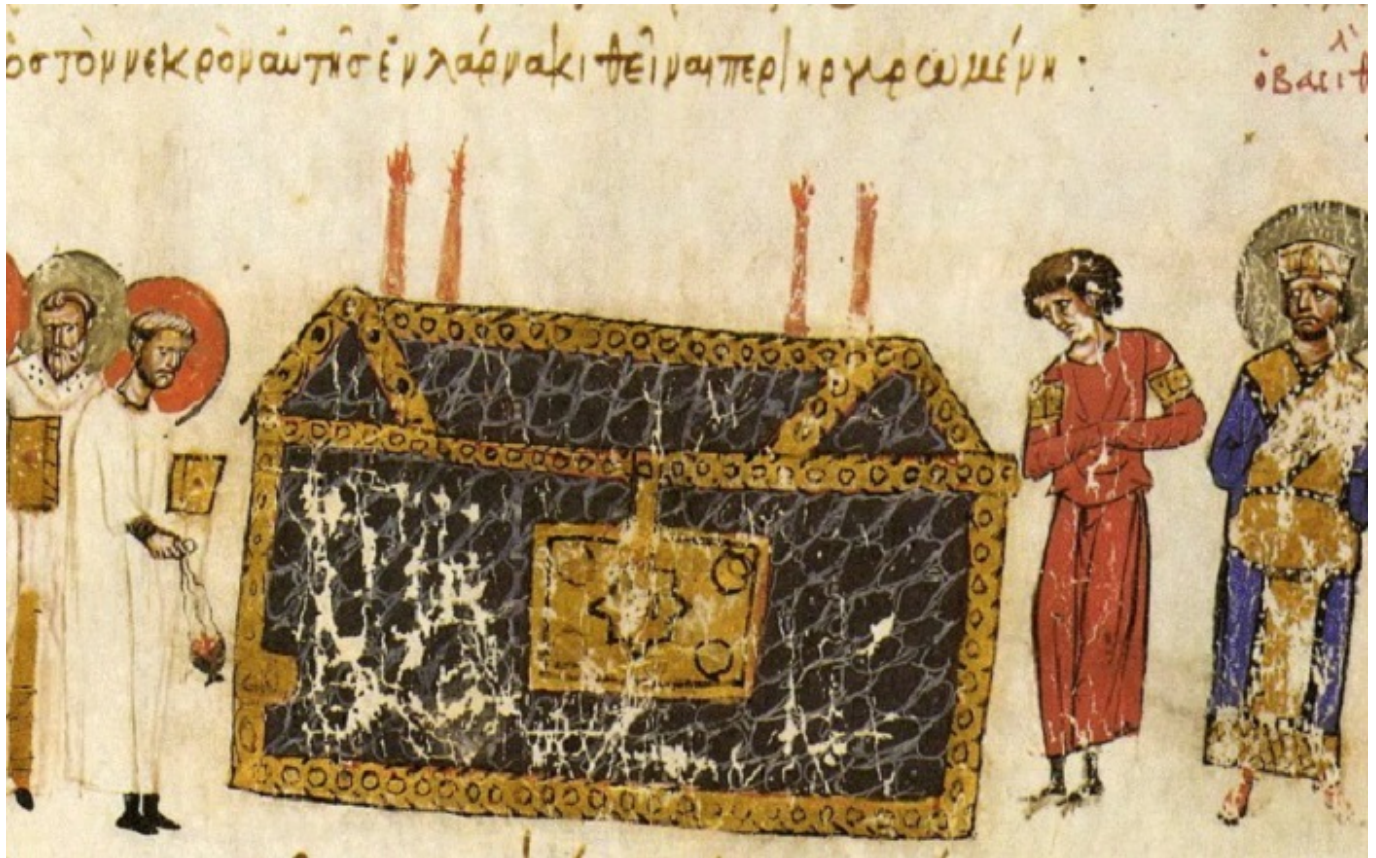 ὸς τὸν νεκρὸν αὐτῆς ἐν λάρνακι θεῖναι περιηργυρωμένη·
ὁ βασιλ